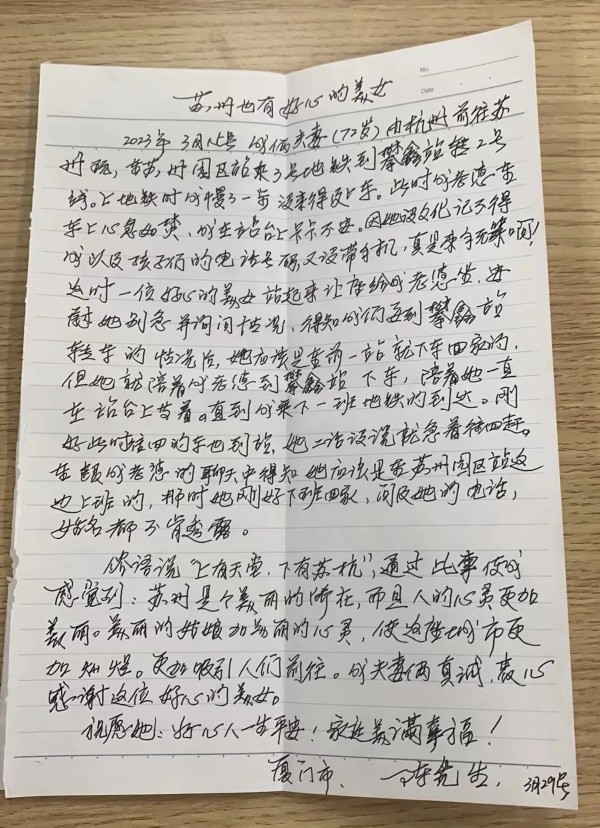 No
Date
苏州也有好心的美女
2023年3月 号我俩夫妻(72岁)由杭州前往苏
州玩,在苏州园区站乘3号地铁到攀鑫站转2号
线。上地铁时我慢了一步没来得及上车。此时我老憑在
车上心急如焚,我在站台上忐忑不安。因她没文化记不得
我以及孩子们的电话号码,又没带手机,真是束手无策啊!
这时一位好心的美女站起来让座给我老憑坐,安
慰她别急并询问情况,得知我们要到攀鑫站
转车的情况后,她应该是在前一站就下车回家的,
但她就陪着我老憑到攀鑫站下车,陪着她一直
在站台上等着。直到我乘下一班地铁的到达。刚
好此时往回的车也到站,她二话没说就急着往回赶。
在跟我老憑的聊天中得知她应该是在苏州园区站这
边上班的,那时她刚好下班回家,问及她的电话,
姓名都不肯透露。
俗语说“上有天堂,下有苏杭”,通过此事使我
感觉到:苏州是个美丽的所在,而且人的心灵更加
美丽。美丽的姑娘加美丽的心灵,使这座城市更
加灿烂。更加吸引人们前往。我夫妻俩真诚,衷心
感谢这位好心的美女。
祝愿她:好心人一生平安!家庭美满幸福!
厦门市、 陈先生,
3月29号